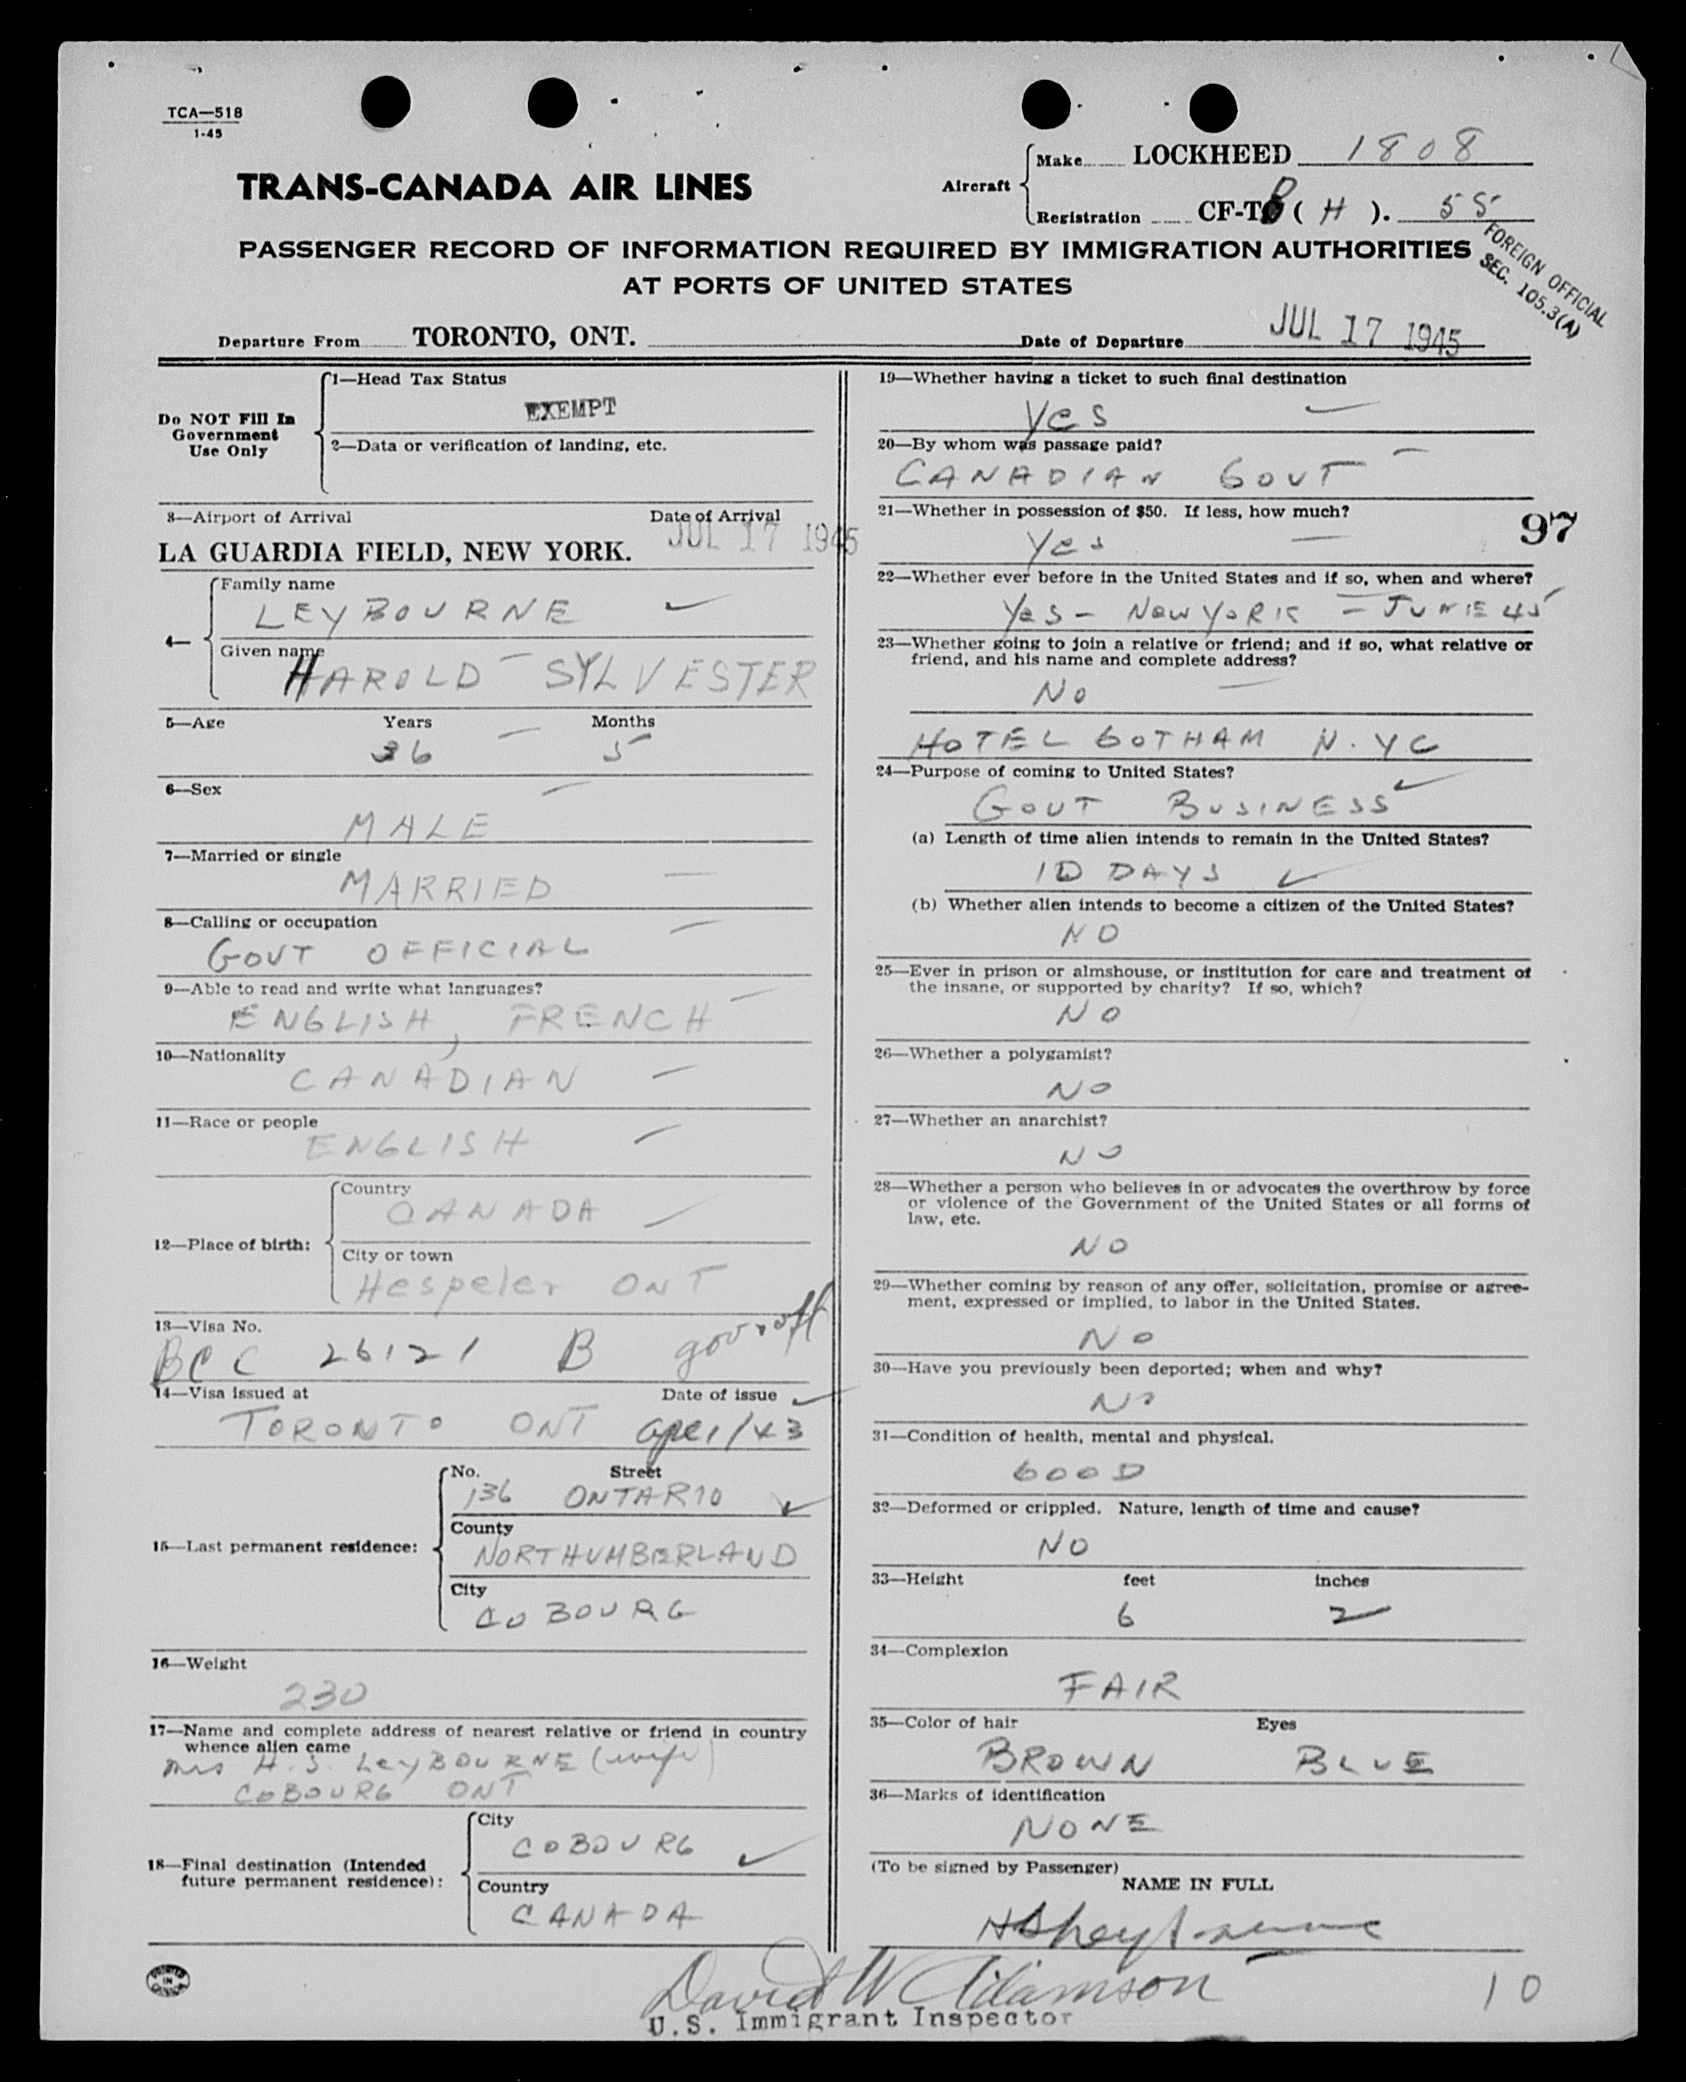 TCA—518
1-45
TRANS-CANADA AIR LINES
Aircraft
Make LOCKHEED 1808
Registration CF-T ( H ). 55
PASSENGER RECORD OF INFORMATION REQUIRED BY IMMIGRATION AUTHORITIES
AT PORTS OF UNITED STATES
FOREIGN OFFICIAL
SEC. 105.3(A)
Departure From TORONTO, ONT. Date of Departure JUL 17 1945
Do NOT Fill In
Government
Use Only
1—Head Tax Status
EXEMPT
2—Data or verification of landing, etc.
3—Airport of Arrival Date of Arrival
LA GUARDIA FIELD, NEW YORK. JUL 17 1945
4—
Family name
LEYBOURNE
Given name
HAROLD SYLVESTER
5—Age Years Months
36 5
6—Sex
MALE
7—Married or single
MARRIED
8—Calling or occupation
GOVT OFFICIAL
9—Able to read and write what languages?
ENGLISH, FRENCH
10—Nationality
CANADIAN
11—Race or people
ENGLISH
12—Place of birth:
Country
CANADA
City or town
Hespeler ONT
13—Visa No.
BCC 26121 B gov. off
14—Visa issued at Date of issue
TORONTO ONT Apr 1/43
15—Last permanent residence:
No. Street
136 ONTARIO
County
NORTHUMBERLAND
City
COBOURG
16—Weight
230
17—Name and complete address of nearest relative or friend in country
whence alien came
Mrs H. S. LEYBOURNE (wife)
COBOURG ONT
18—Final destination (Intended
future permanent residence):
City
COBOURG
Country
CANADA
PRINTED
IN
CANADA
19—Whether having a ticket to such final destination
Yes
20—By whom was passage paid?
CANADIAN GOVT
21—Whether in possession of $50. If less, how much?
Yes
97
22—Whether ever before in the United States and if so, when and where?
Yes - New York - JUNE 45
23—Whether going to join a relative or friend; and if so, what relative or
friend, and his name and complete address?
No
HOTEL GOTHAM N.YC
24—Purpose of coming to United States?
GOVT BUSINESS
(a) Length of time alien intends to remain in the United States?
10 DAYS
(b) Whether alien intends to become a citizen of the United States?
NO
25—Ever in prison or almshouse, or institution for care and treatment of
the insane, or supported by charity? If so, which?
NO
26—Whether a polygamist?
NO
27—Whether an anarchist?
NO
28—Whether a person who believes in or advocates the overthrow by force
or violence of the Government of the United States or all forms of
law, etc.
NO
29—Whether coming by reason of any offer, solicitation, promise or agree-
ment, expressed or implied, to labor in the United States.
NO
30—Have you previously been deported; when and why?
NO
31—Condition of health, mental and physical.
GOOD
32—Deformed or crippled. Nature, length of time and cause?
NO
33—Height feet inches
6 2
34—Complexion
FAIR
35—Color of hair Eyes
BROWN BLUE
36—Marks of identification
NONE
(To be signed by Passenger)
NAME IN FULL
HS Leybourne
David W Adamson
U.S. Immigrant Inspector
10